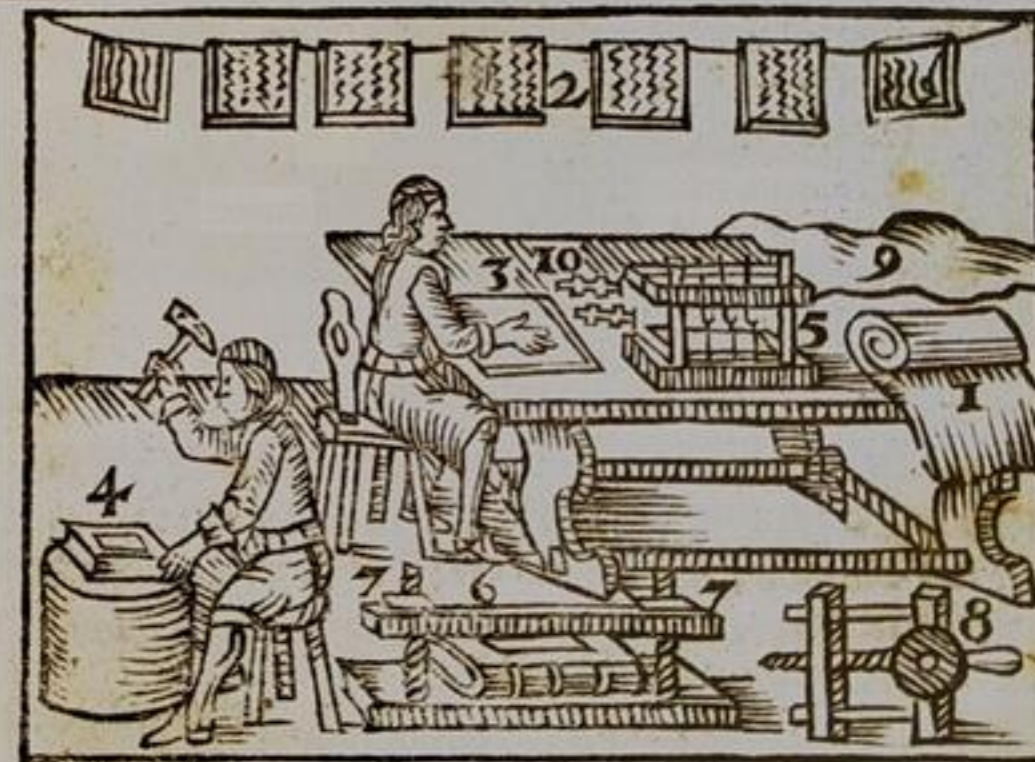 2
9
3 10
5
1
4
7 6 7
8